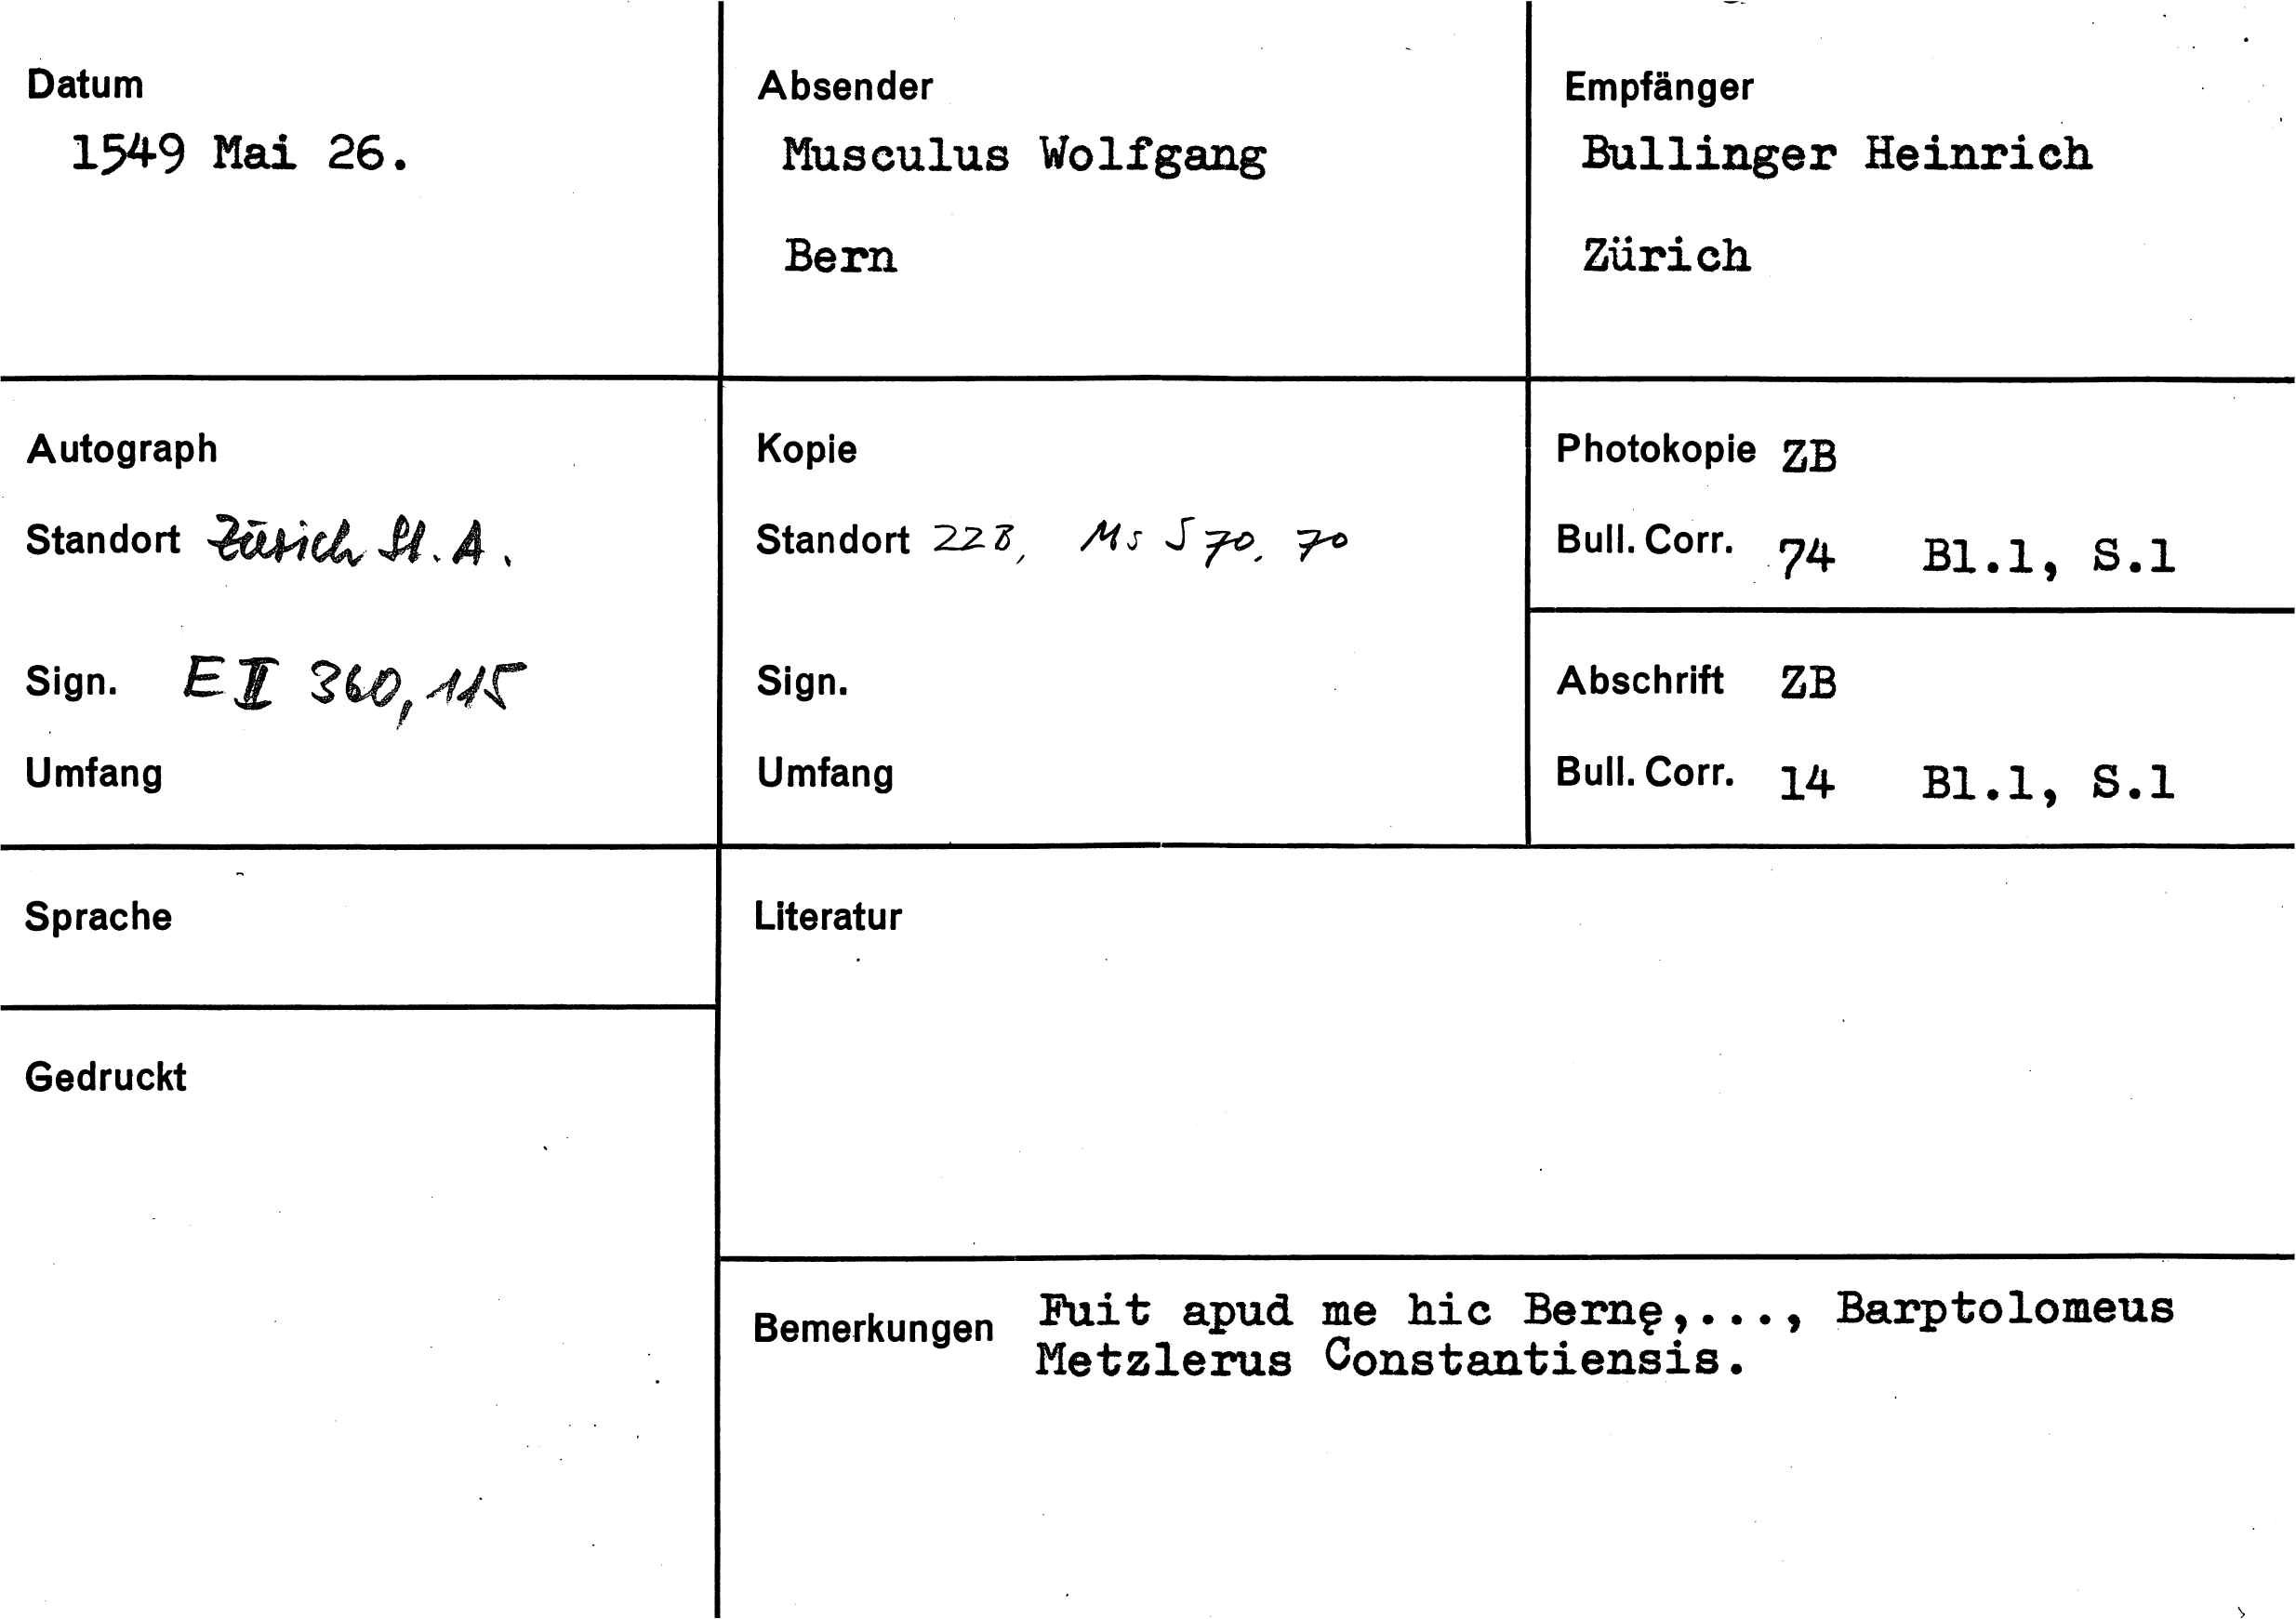 Datum
1549 Mai 26.
Absender
Musculus Wolfgang
Bern
Empfänger
Bullinger Heinrich
Zürich
Autograph
Standort Zürich St. A.
Sign. E II 360, 115
Umfang
Kopie
Standort ZZB, Ms S 70, 70
Sign.
Umfang
Photokopie ZB
Bull. Corr. 74 Bl.1, S.1
Abschrift ZB
Bull. Corr. 14 Bl.1, S.1
Sprache
Gedruckt
Literatur
Bemerkungen Fuit apud me hic Bernę,..., Barptolomeus
Metzlerus Constantiensis.